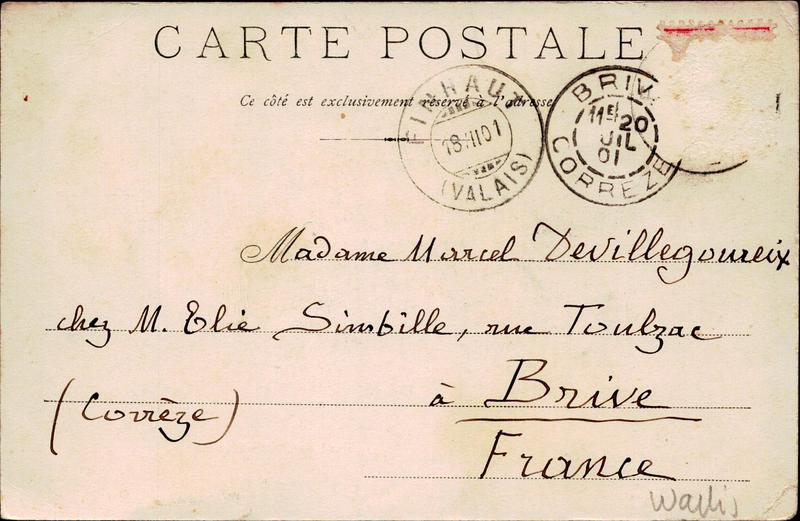 CARTE POSTALE
Ce côté est exclusivement réservé à l'adresse
FINHAUT
18.VII.01
(VALAIS)
BRIVE
11E 20
JUIL
01
CORREZE
Madame Marcel Devillegoureix
chez M. Elie Simbille, rue Toulzac
(Corrèze) à Brive
France